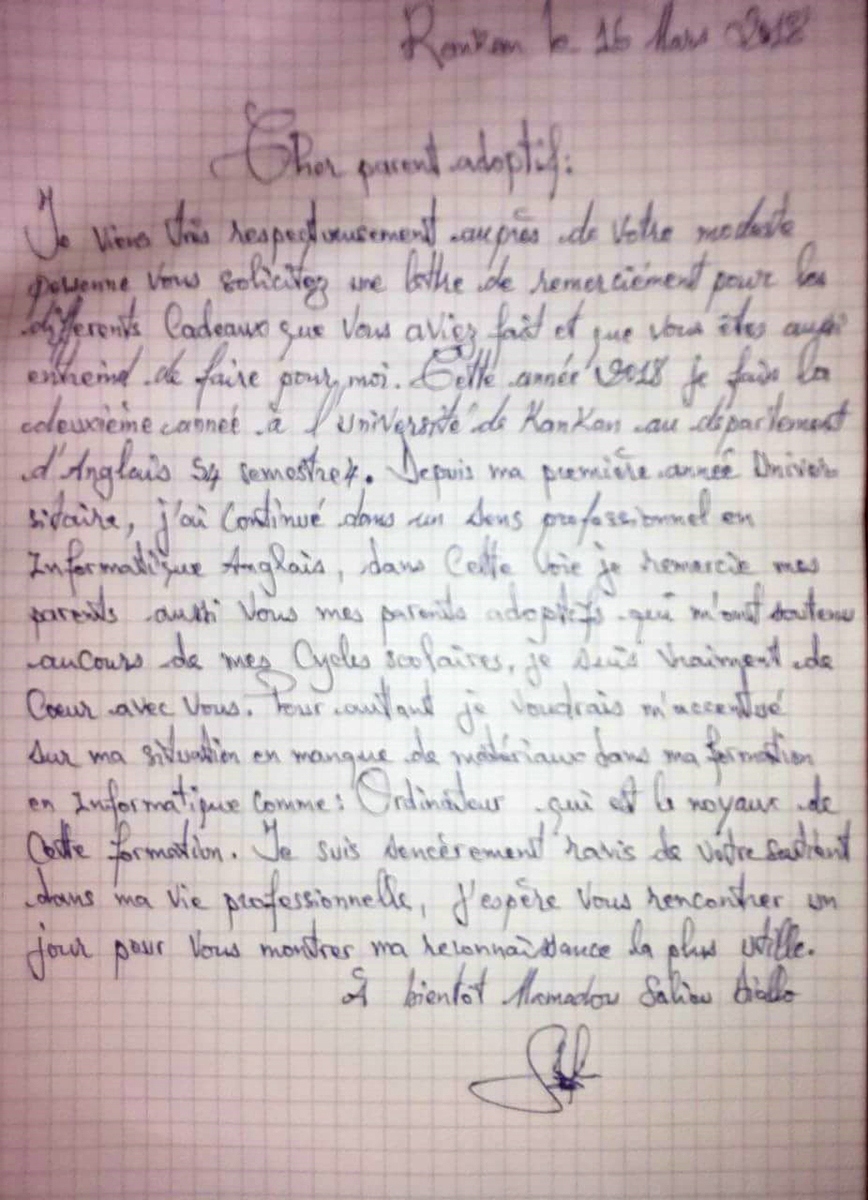 Kankan le 16 Mars 2018
Cher parent adoptif:
Je viens très respectueusement auprès de votre modeste
personne vous solicitez une lettre de remerciément pour les
différents Cadeaux que vous aviez fait et que vous êtes aussi
entreind de faire pour moi. Cette année 2018 je fais la
deuxième année à l'Université de Kankan au département
d'Anglais S4 semestre4. Depuis ma première année Univer
sitaire, j'ai Continué dans un sens professionnel en
Informatique Anglais, dans Cette voie je remercie mes
parents aussi Vous mes parents adoptifs qui m'ont soutenu
aucours de mes Cycles scolaires, je suis vraiment de
Cœur avec Vous. Pour autant je voudrais m'accentué
sur ma situation en manque de matériaux dans ma formation
en Informatique Comme: Ordinateur qui est le noyaux de
Cette formation. Je suis sencèrement ravis de votre soutient
dans ma vie professionnelle, j'espère Vous rencontrer un
jour pour Vous montrer ma reconnaissance la plus utille.
À bientôt Mamadou Saliou Diallo